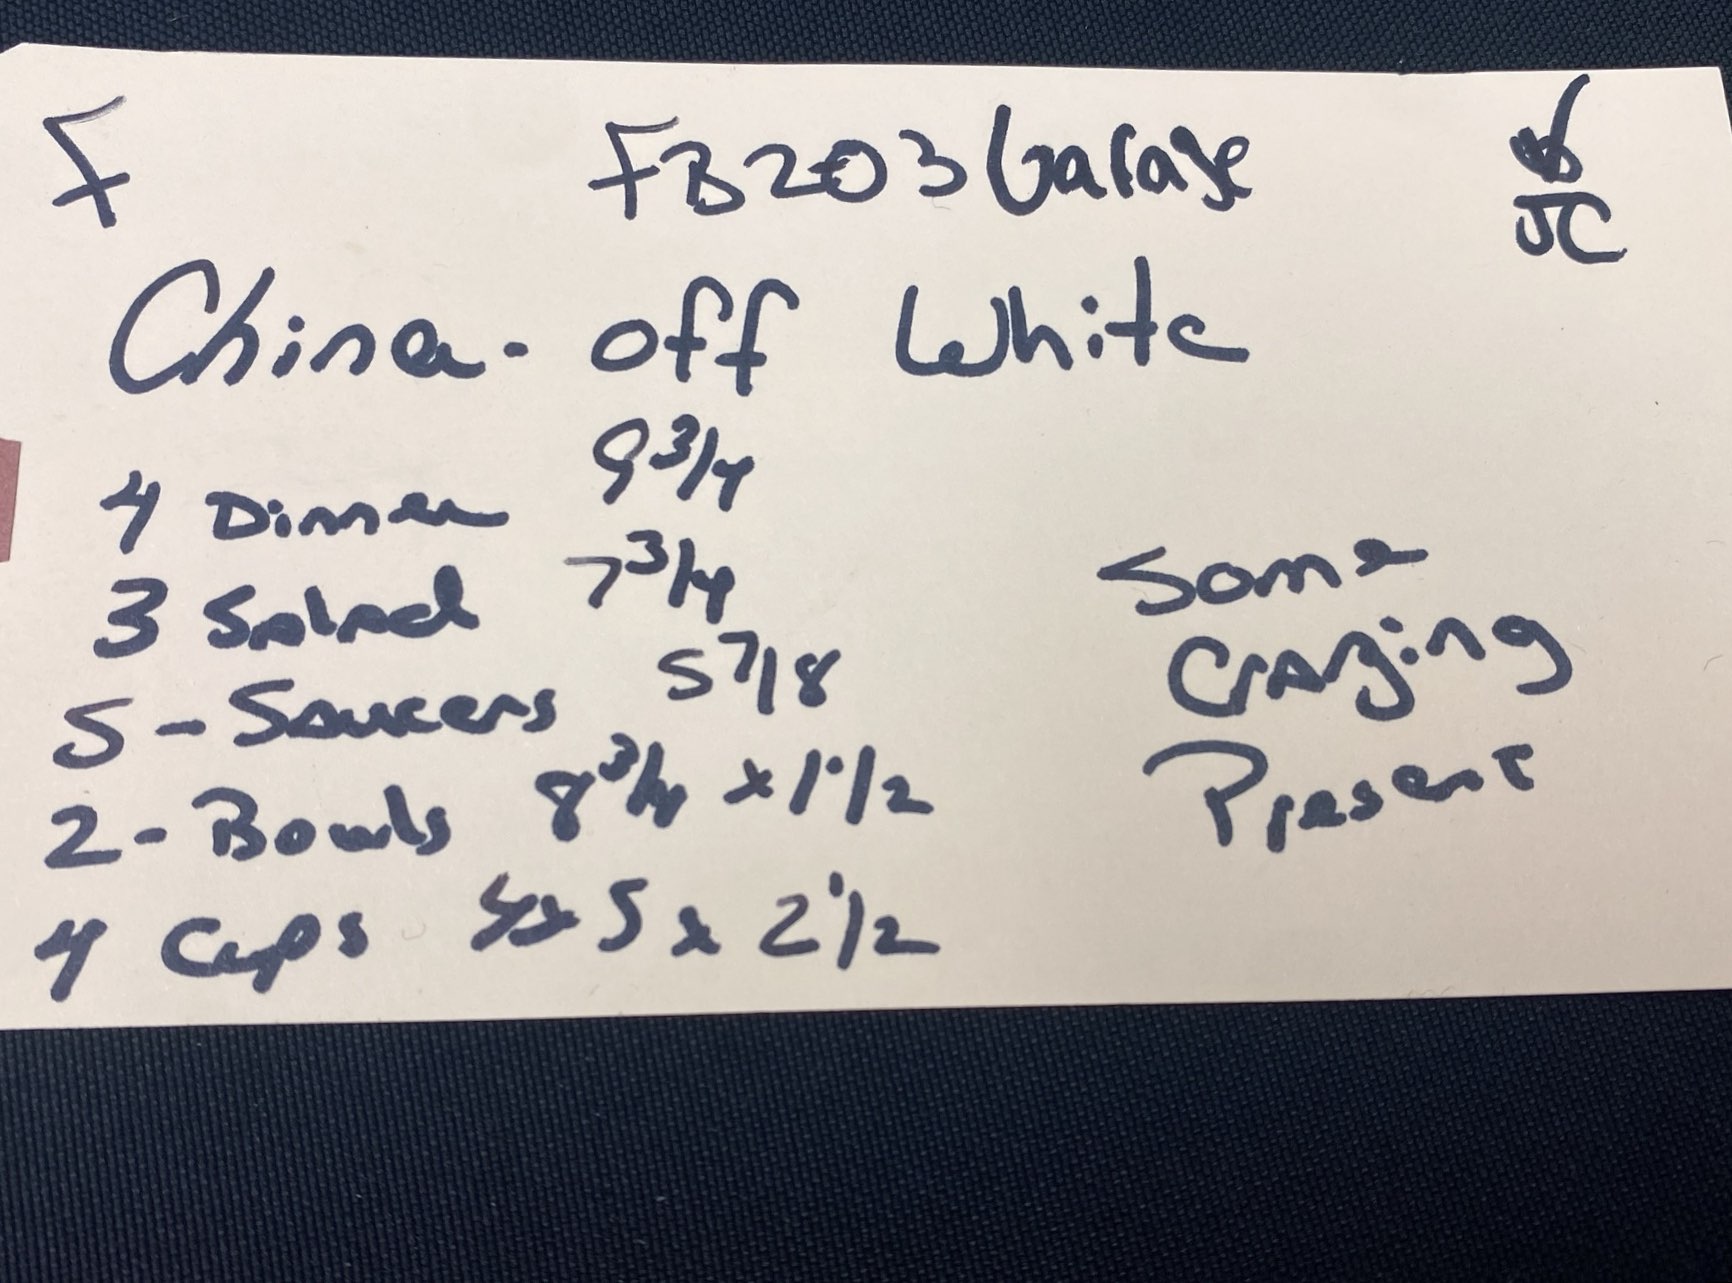 F FB203 Garage
JC
China - off White
4 Dinner 9 3/4
3 Salad 7 3/4
5 - Saucers 5 7/8
2 - Bowls 8 3/4 x 1 1/2
4 Cups 5 x 2 1/2
Some
Crazing
Present